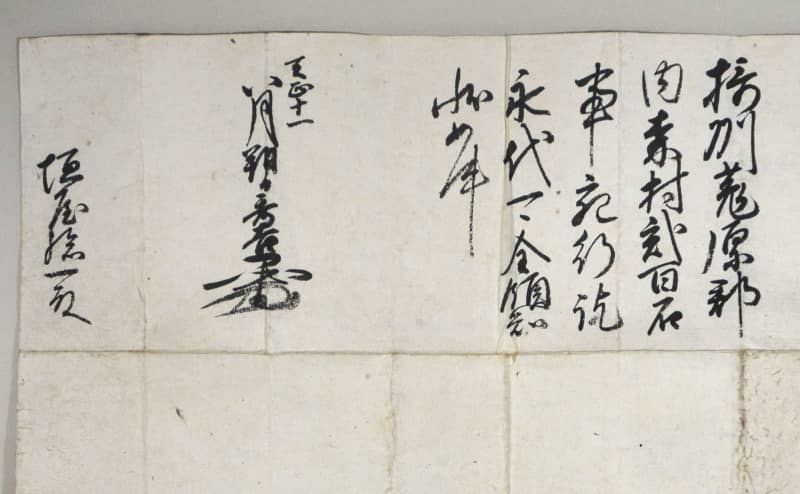 摂州菟原郡
内森村弐百石
事宛行訖
永代可全領知
状如件
天正十一
八月朔日秀吉
垣屋
殿